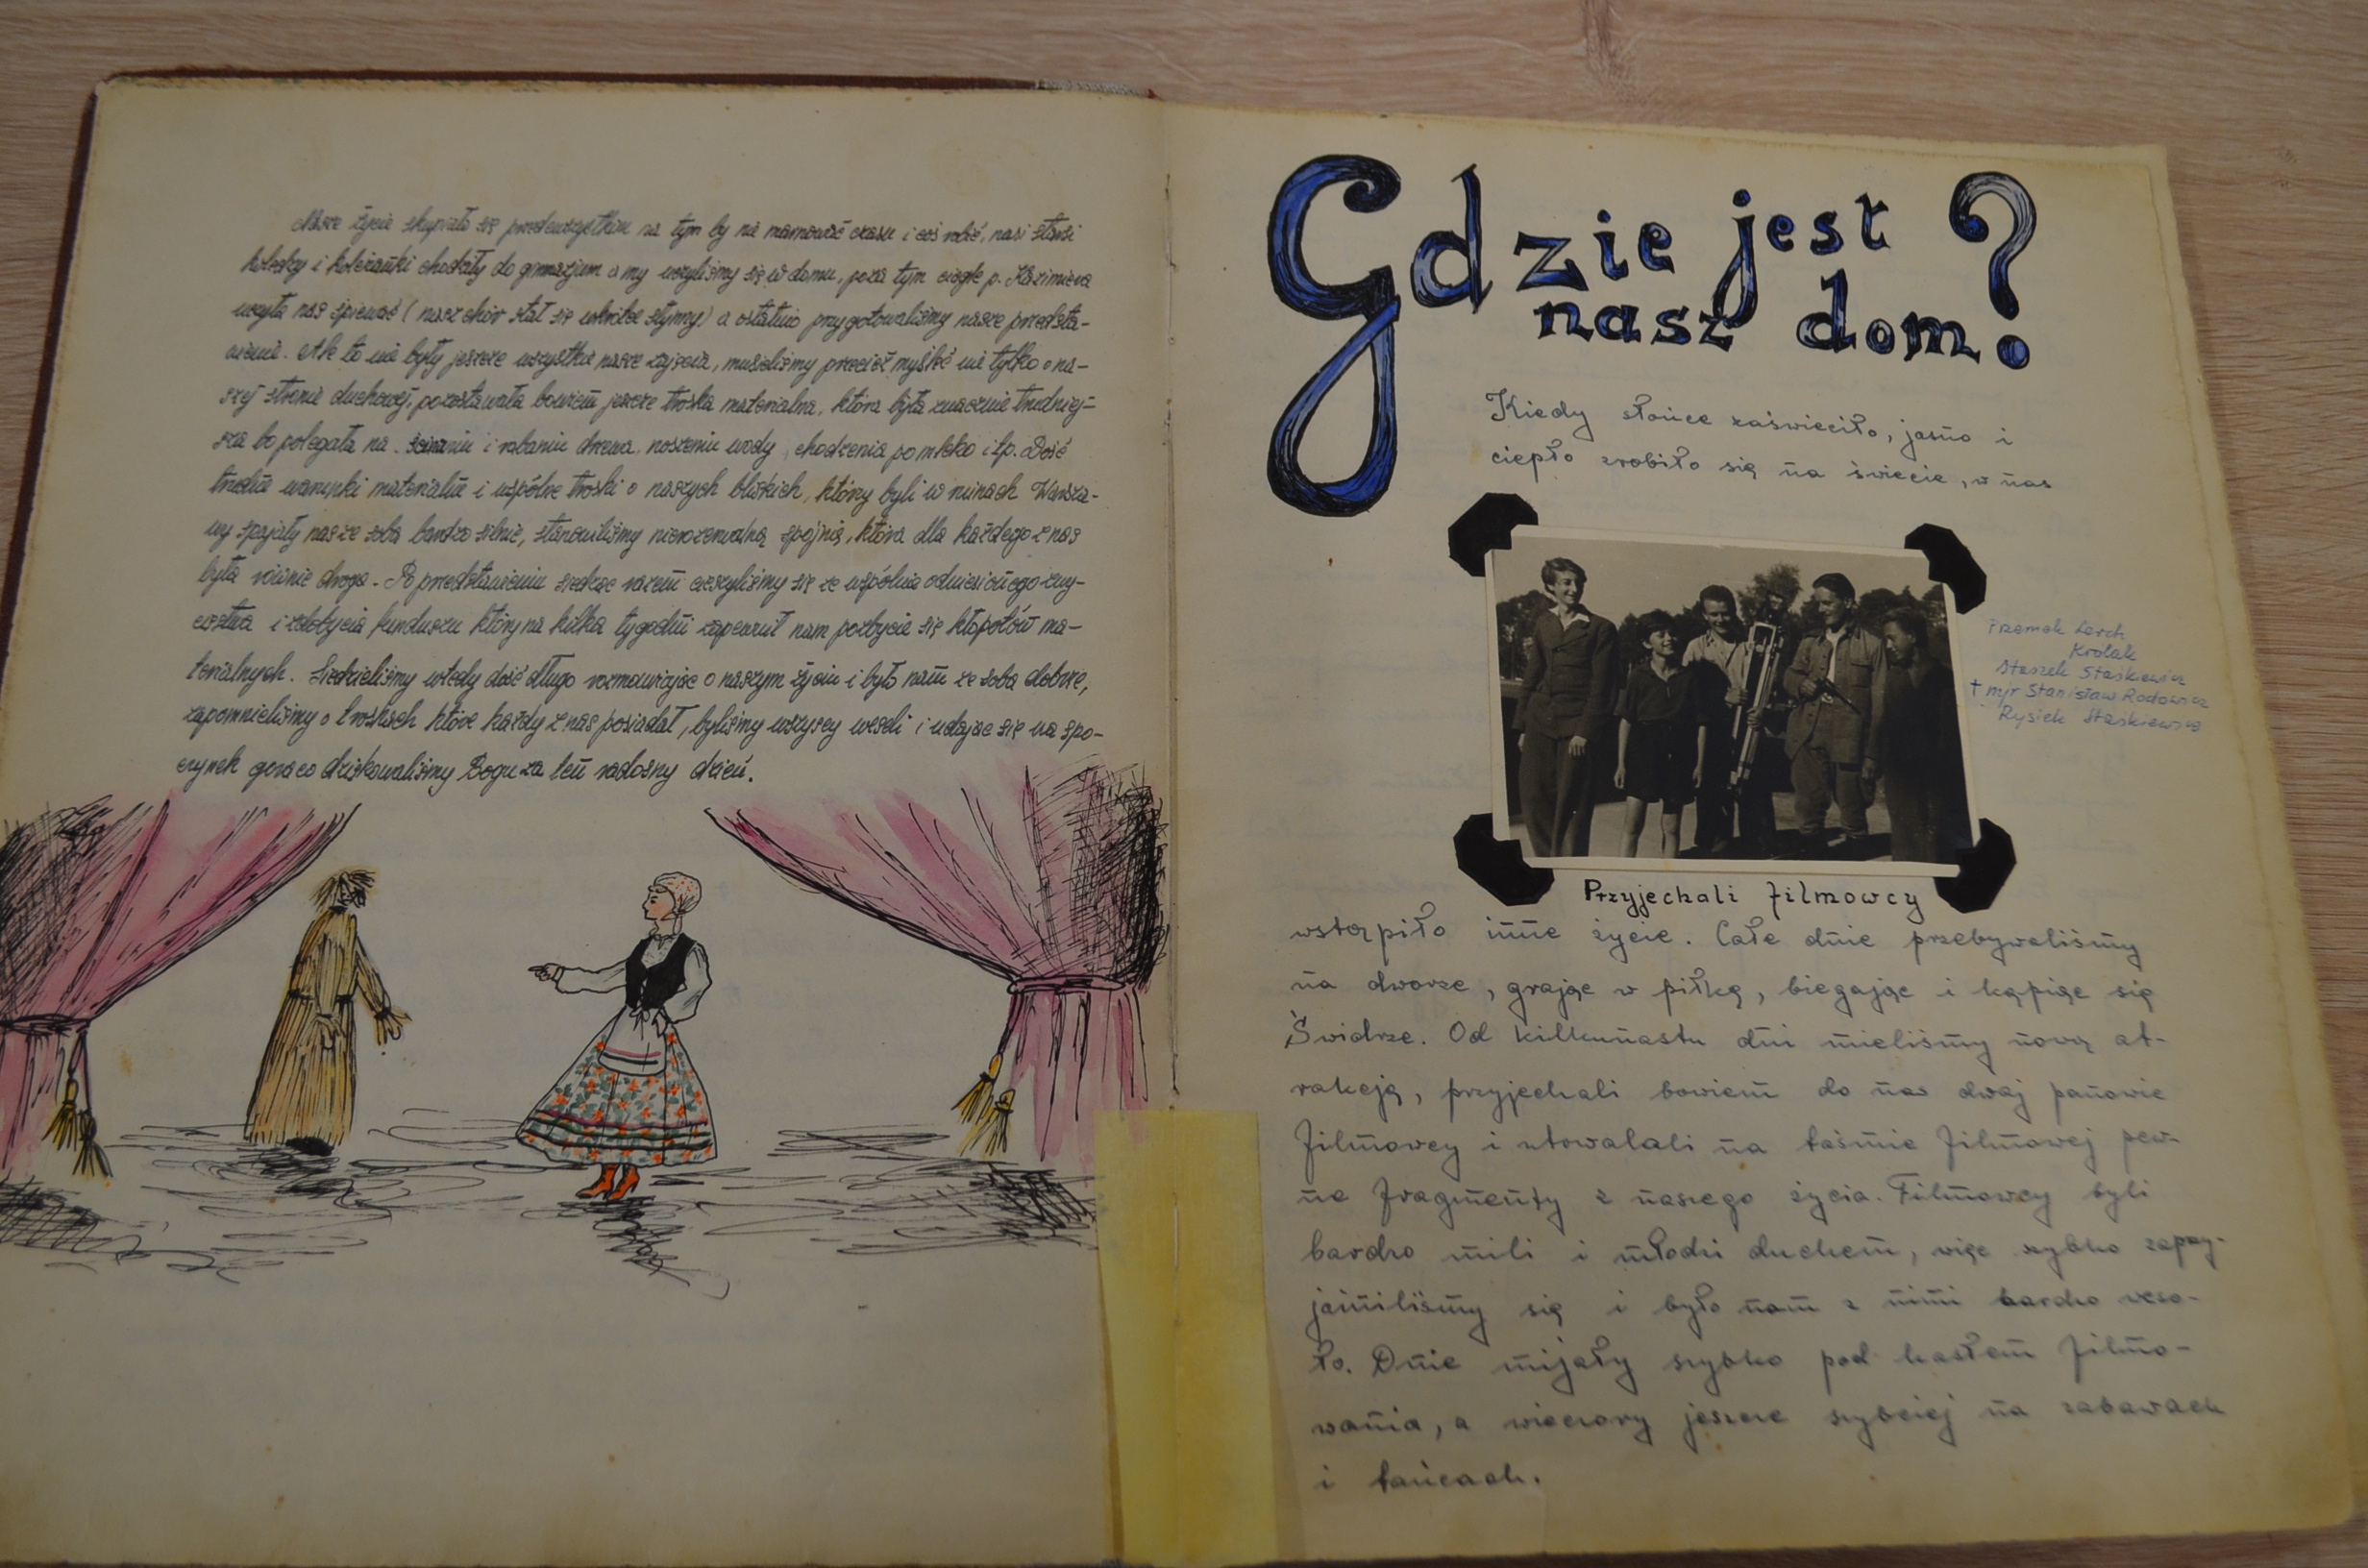 Nasze życie skupiało się przedewszystkim na tym by nie marnować czasu i coś robić, nasi starsi
koledzy i koleżanki chodziły do gimnazjum a my uczyliśmy się w domu, poza tym ciągle p. Kazimiera
uczyła nas śpiewać (nasz chór stał się wkrótce słynny) a ostatnio przygotowaliśmy nasze przedsta-
wienie. Ale to nie były jeszcze wszystkie nasze zajęcia, musieliśmy przecież myśleć nie tylko o na-
szej stronie duchowej, pozostawała bowiem jeszcze troska materialna, która była znacznie trudniej-
sza bo polegała na i rąbaniu drzewa, noszeniu wody, chodzenia po mleko i tp. Dość
trudne warunki materialne i wspólne troski o naszych bliskich, którzy byli w ruinach Warsza-
wy spajały nas ze sobą bardzo silnie, stanowiliśmy nierozerwalną spójnię, która dla każdego z nas
była równie droga. Po przedstawieniu siedząc razem cieszyliśmy się ze wspólnie odniesionego zwy-
cięstwa i zdobycia funduszu który na kilka tygodni zapewnił nam pozbycie się kłopotów ma-
terialnych. Siedzieliśmy wtedy dość długo rozmawiając o naszym życiu i było nam ze sobą dobrze,
zapomnieliśmy o troskach które każdy z nas posiadał, byliśmy wszyscy weseli i udając się na spo-
czynek gorąco dziękowaliśmy Bogu za ten radosny dzień.
Gdzie jest
nasz dom?
Kiedy słońce zaświeciło, jasno i
ciepło zrobiło się na świecie, w nas
Przemek Lerch
Królak
Staszek Staśkiewicz
† mjr Stanisław Rodowicz
Rysiek Staśkiewicz
Przyjechali filmowcy
wstąpiło inne życie. Całe dnie przebywaliśmy
na dworze, grając w piłkę, biegając i kąpiąc się
Świdrze. Od kilkunastu dni mieliśmy nową at-
rakcję, przyjechali bowiem do nas dwaj panowie
filmowcy i utrwalali na taśmie filmowej pew-
ne fragmenty z naszego życia. Filmowcy byli
bardzo mili i młodzi duchem, więc szybko zaprzy-
jaźniliśmy się i było nam z nimi bardzo weso-
ło. Dnie mijały szybko pod hasłem filmo-
wania, a wieczory jeszcze szybciej na zabawach
i tańcach.